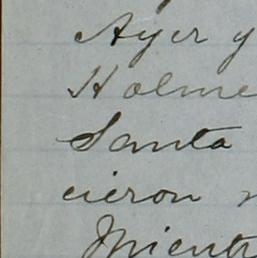 Ayer y
Holme
Santa
cieron
Mientr